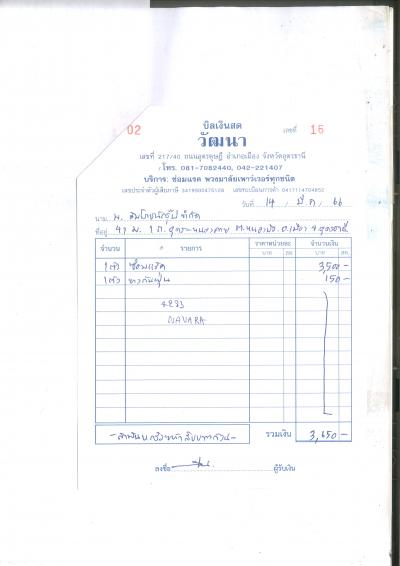 บิลเงินสด
02 วัฒนา เลขที่ 16
เลขที่ 217/40 ถนนอุดรดุษฎี อำเภอเมือง จังหวัดอุดรธานี
โทร. 081-7082440, 042-221407
บริการ: ซ่อมแรค พวงมาลัยเพาเวอร์ทุกชนิด
เลขประจำตัวผู้เสียภาษี 3419900475126 เลขทะเบียนการค้า 0417114704952
วันที่ 14 / มี.ค / 66
นาม
ที่อยู่ 47 ม. 1 ถ.
จำนวน รายการ ราคาหน่วยละ จำนวนเงิน
บาท สต. บาท สต.
1 ตัว ซ่อมแร็ค 3,500 -
1 ตัว ยางกันฝุ่น 150 -
4233
NAVARA
- สามพันหกร้อยห้าสิบบาทถ้วน - รวมเงิน 3,650 -
ลงชื่อ ผู้รับเงิน